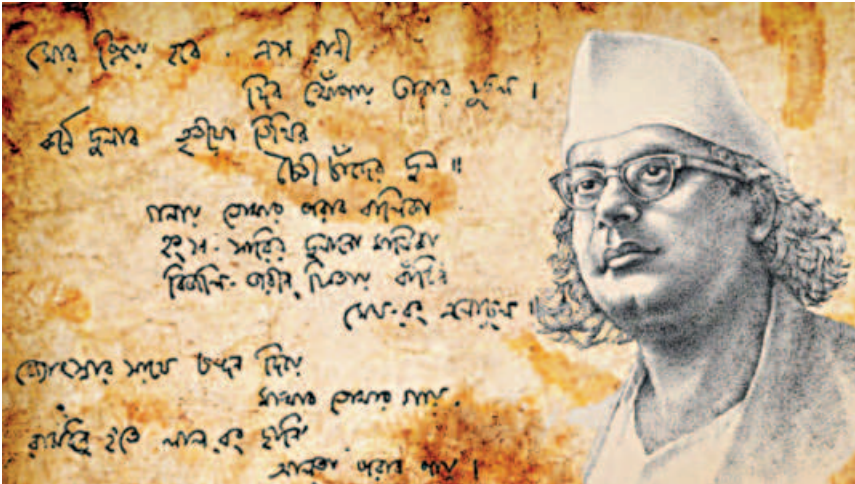 মোর প্রিয়া হবে. এস রানী
দিব খোঁপায় তারার ফুল।
কর্ণে দুলাব তৃতীয়া তিথির
চৈতী চাঁদের দুল॥
গলায় তোমার পরাব বালিকা
হংস-সারির দুলানো মালিকা
বিজলি-জরীন ফিতায় বাঁধিব
মেঘ-রং এলোচুল॥
জ্যোৎস্নার সাথে চন্দন দিয়ে
মাখাব তোমার গায়,
রামধনু হতে লাল রং ছানি
আলতা পরাব পায়।